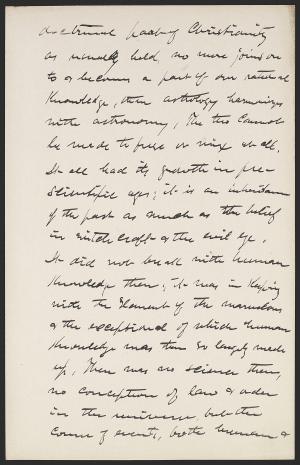 doctrinal part of Christianity
as usually held, no more joins on
to or becomes a part of our rational
knowledge, than astrology harmonizes
with astronomy. The two cannot
be made to fuse or mix at all.
It all had its growth in pre-
scientific ages; it is an inheritance
of the past as much as the belief
in witchcraft or the evil eye.
It did not break with human
knowledge then; it was in keeping
with the element of the marvelous
& the exceptional of which human
knowledge was then so largely made
up. There was no science then,
no conception of law & order
in the universe, but the
course of events, both human &